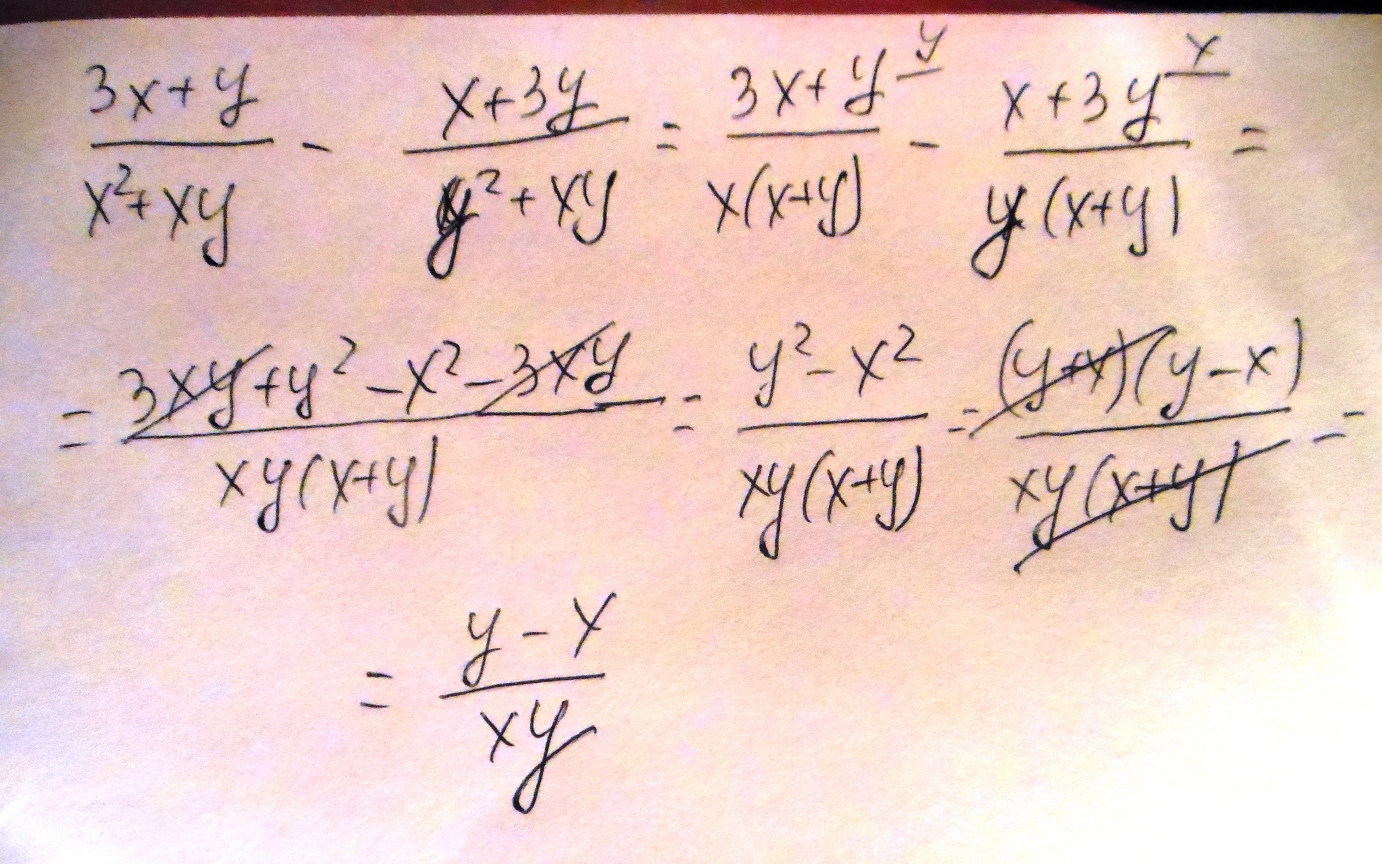 (3x+y)/(x²+xy) - (x+3y)/(y²+xy) = (3x+y)^y/(x(x+y)) - (x+3y)^x/(y(x+y)) =
= (3xy+y²-x²-3xy)/(xy(x+y)) = (y²-x²)/(xy(x+y)) = ((y+x)(y-x))/(xy(x+y)) =
= (y-x)/(xy)